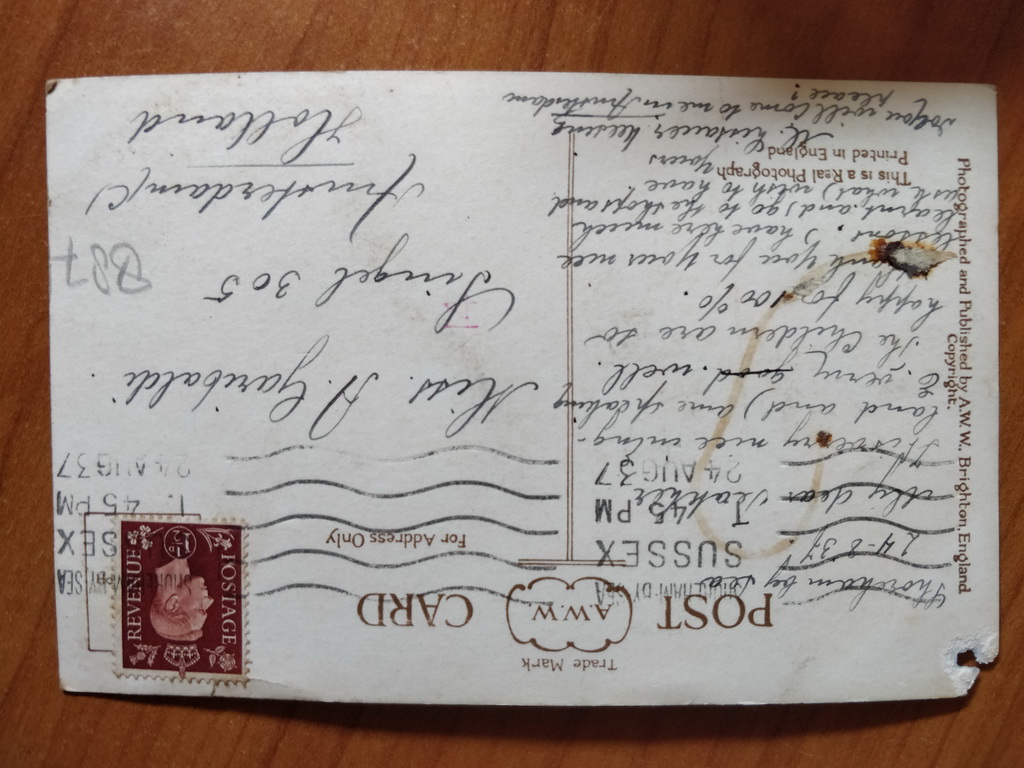 Trade Mark
POST A.W.W. CARD
For Address Only
SHOREHAM-BY-SEA
SUSSEX
1.45 PM
24 AUG 37
SHOREHAM-BY-SEA
SUSSEX
1.45 PM
24 AUG 37
POSTAGE
REVENUE
1½D
Shoreham by sea
24-8-37.
My dear
It is very nice in Eng-
land and I ame speaking
E. very good. well.
The Children are so
happy for 100%.
Thank you for your nice
lessons. I have here much
learnt and I go to the shops and
ask what I wish to have!
yours
M.
So you will come to me in Amsterdam
please?
Miss. A. Garibaldi.
Singel 305
Amsterdam (C)
Holland
B87
This is a Real Photograph
Printed in England
Photographed and Published by A.W.W. Brighton, England
Copyright.